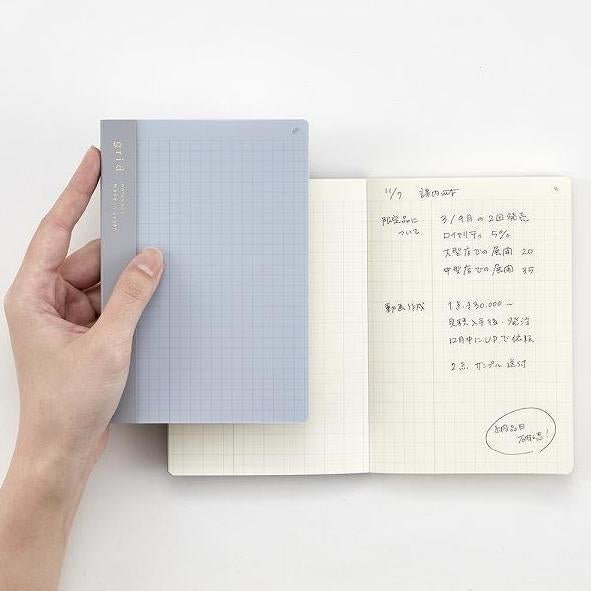 grid
11/7
限定品に
ついて
3/9月の2回発売
ロイヤリティ 5%
大型店での展開 20
中型店での展開 35
動画作成
1点 ¥30,000〜
見積入手後・発注
12月中にUPで依頼
2点 サンプル送付
納品日